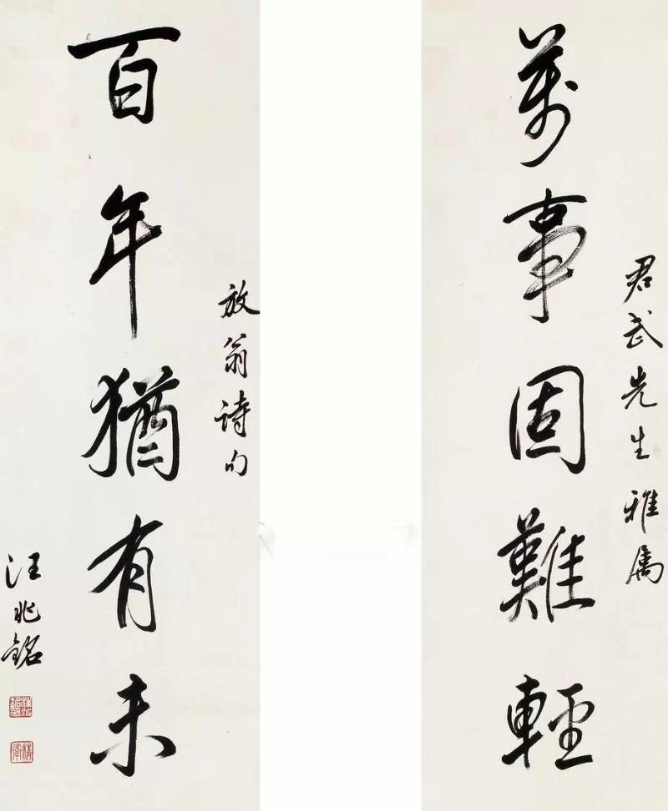 君武先生雅属
萬事固難輕
放翁诗句
百年猶有未
汪兆銘